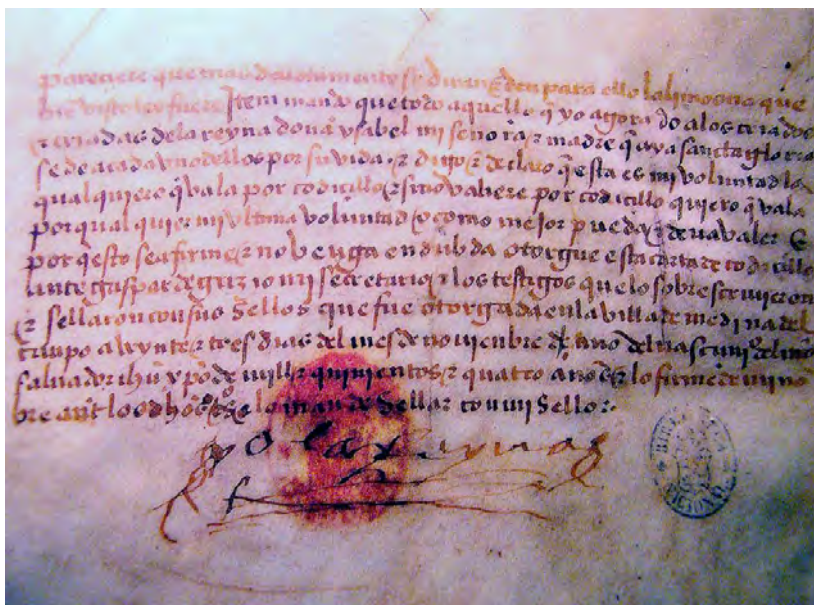 paresciere que mas deuotamente se diran e den para ello la limosna que
bie visto les fuere Item mando que todo aquello q̃ yo agora do a los criados
⁊ criadas dela reyna doña ysabel mi señora ⁊ madre q̃ aya sancta gloria
se de a cada vno dellos por su vida ⁊ digo ⁊ declaro q̃ esta es mi voluntad la
qual quiero q̃ vala por codicillo ⁊ si no valiere por codicillo quiero q̃ vala
por qual quier mi vltima voluntad o como mejor pueda ⁊ deua valer E
por q̃ esto sea firme ⁊ no venga en dubda otorgue esta carta de codicillo
ante gaspar de grizio mi secretario ⁊ los testigos que lo sobrescriuieron
⁊ sellaron con sus sellos que fue otorgada en la villa de medina del
campo a veynte ⁊ tres dias del mes de nouienbre del año del nascimi.º del nr̃o
saluador ihũ xp̃o de mill ⁊ quinientos ⁊ quatro años ⁊ lo firme de mi no
bre ant̃ los dhos tsº ⁊ lo mande sellar con mi sello.
yo la reyna
BIBLIOTECA NACIONAL